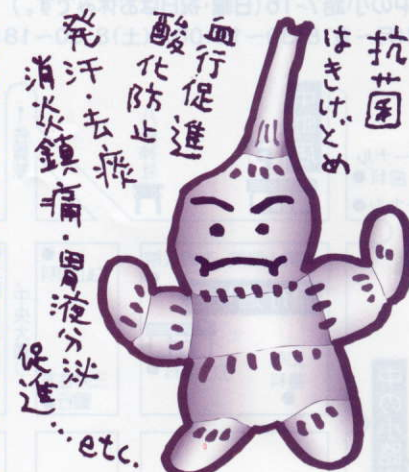 抗菌
はきけどめ
血行促進
酸化防止
発汗・去痰
消炎鎮痛・胃液分泌
促進…etc.